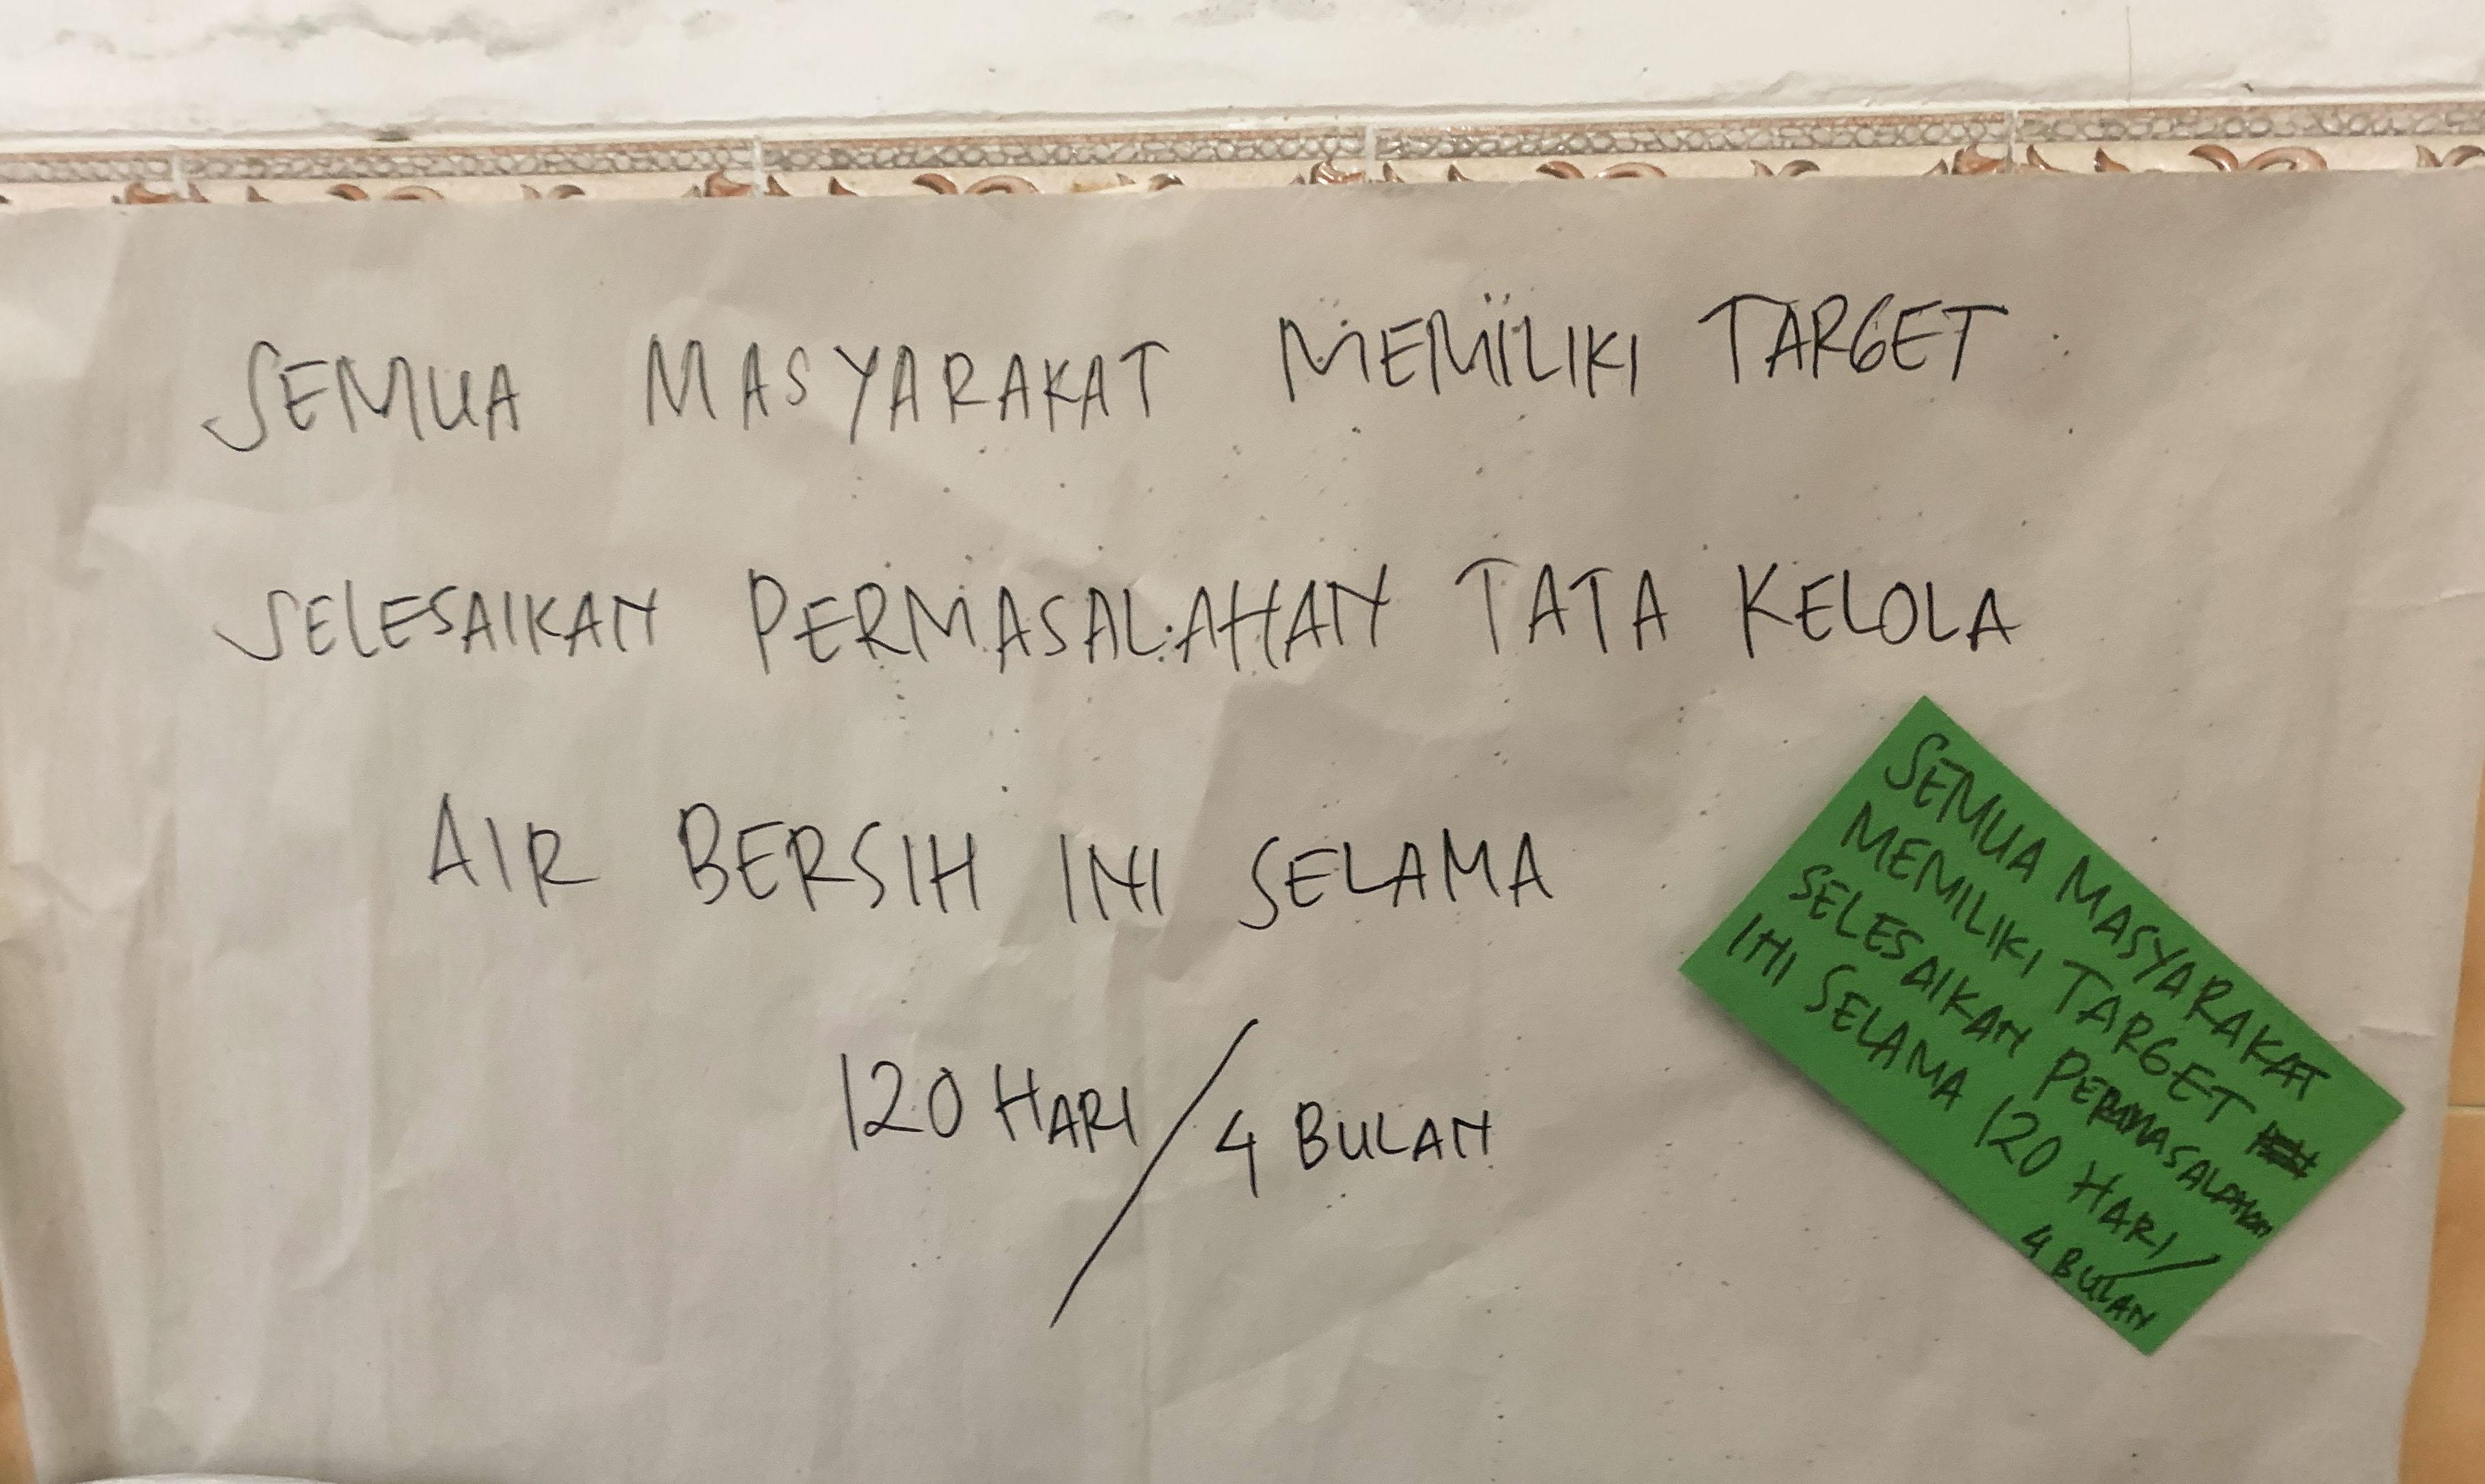 SEMUA MASYARAKAT MEMILIKI TARGET
SELESAIKAN PERMASALAHAN TATA KELOLA
AIR BERSIH INI SELAMA
120 HARI / 4 BULAN
SEMUA MASYARAKAT
MEMILIKI TARGET
SELESAIKAN PERMASALAHAN
INI SELAMA 120 HARI /
4 BULAN